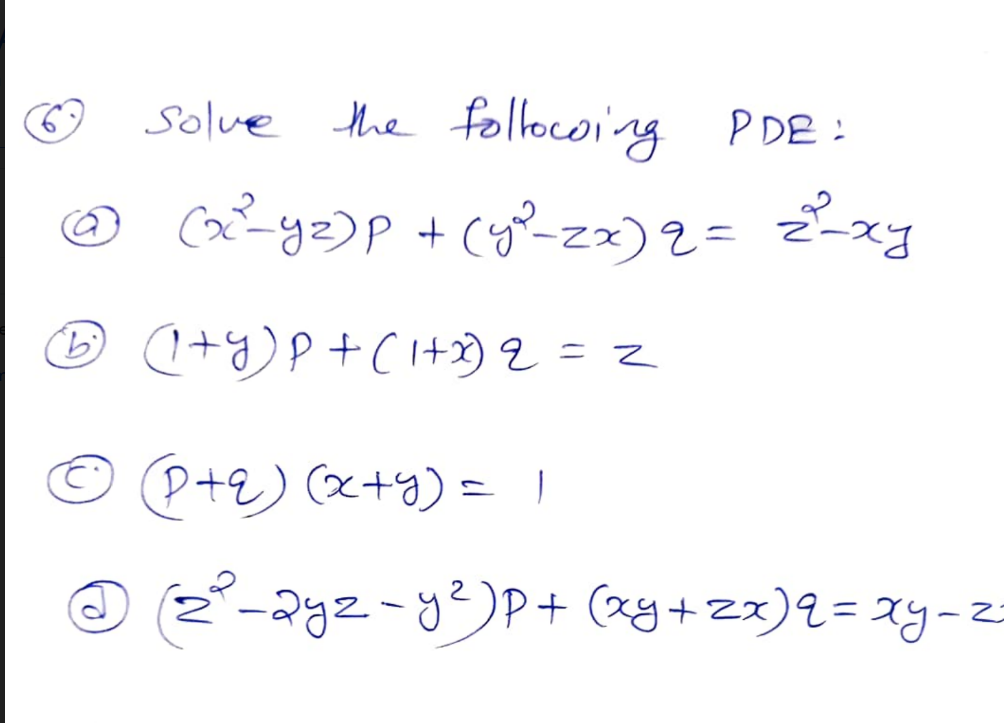 6. Solve the following PDE:
a (x²-yz)p + (y²-zx)q = z²-xy
b. (1+y)p + (1+x)q = z
c. (p+q)(x+y) = 1
d (z²-2yz-y²)p + (xy+zx)q = xy-z